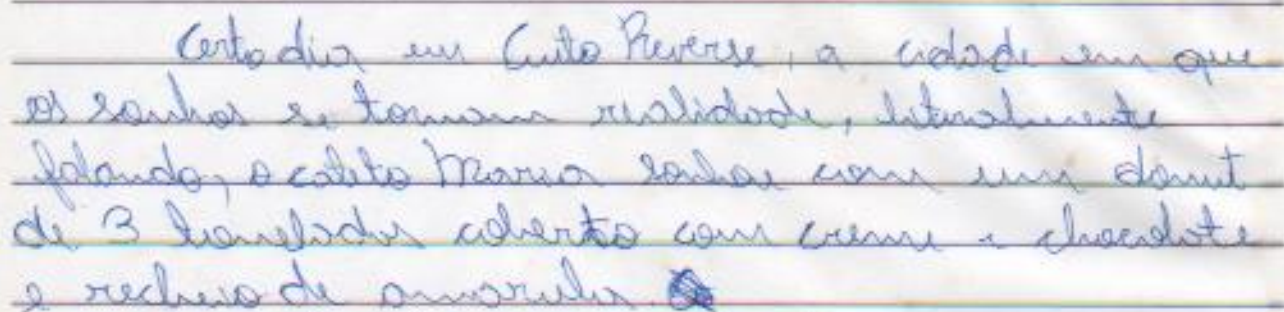 Certo dia em Cuito Reverse, a cidade em que
os sonhos se tornam realidade, literalmente
falando, o Maria sonhou com um donut
de 3 toneladas coberto com creme e chocolate
e recheio de amarula.